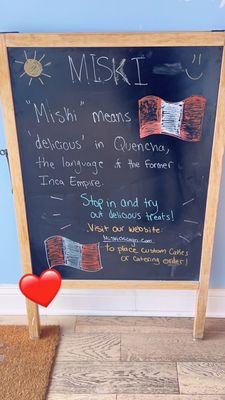 MISKI
"Miski" means
'delicious' in Quencha,
the language of the Former
Inca Empire.
Stop in and try
out delicious treats!
Visit our website:
to place custom cakes
or catering order!